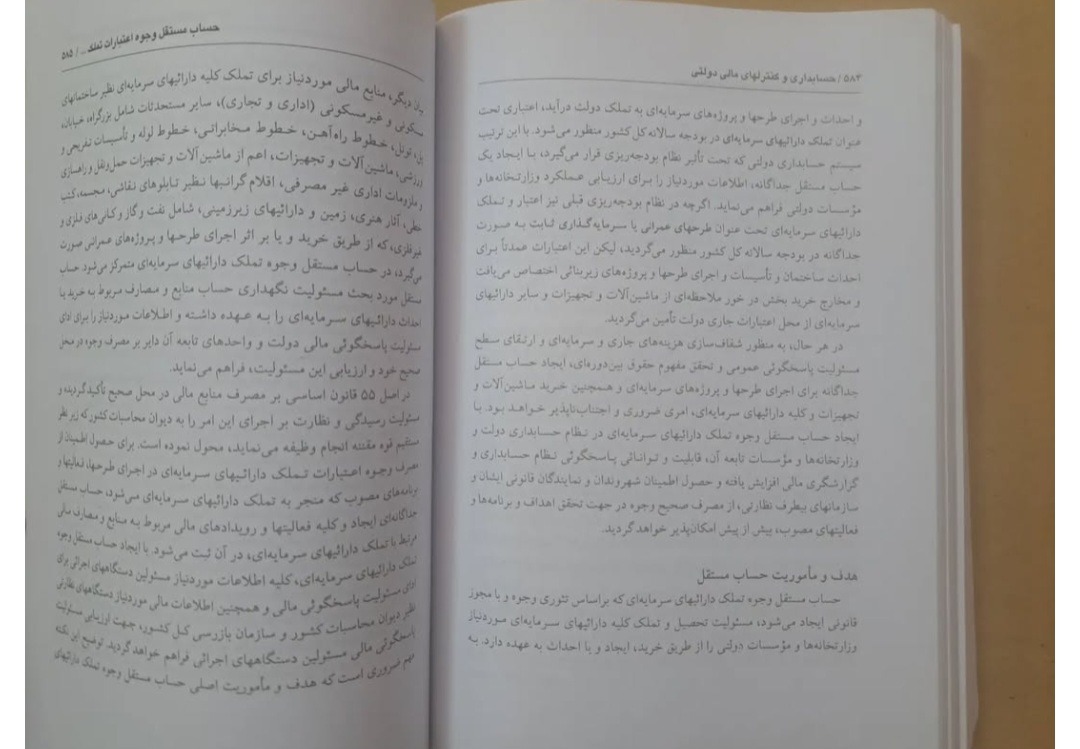 ۵۸۴ / حسابداری و کنترلهای مالی دولتی
و احداث و اجرای طرحها و پروژه‌های سرمایه‌ای به تملک دولت درآید، اعتباری تحت
عنوان تملک دارائیهای سرمایه‌ای در بودجه سالانه کل کشور منظور می‌شود. با این ترتیب
سیستم حسابداری دولتی که تحت تأثیر نظام بودجه‌ریزی قرار می‌گیرد، با ایجاد یک
حساب مستقل جداگانه، اطلاعات موردنیاز را برای ارزیابی عملکرد وزارتخانه‌ها و
مؤسسات دولتی فراهم می‌نماید. اگرچه در نظام بودجه‌ریزی قبلی نیز اعتبار و تملک
دارائیهای سرمایه‌ای تحت عنوان طرحهای عمرانی یا سرمایه‌گذاری ثابت به صورت
جداگانه در بودجه سالانه کل کشور منظور می‌گردید، لیکن این اعتبارات عمدتاً برای
احداث ساختمان و تأسیسات و اجرای طرحها و پروژه‌های زیربنائی اختصاص می‌یافت
و مخارج خرید بخش در خور ملاحظه‌ای از ماشین‌آلات و تجهیزات و سایر دارائیهای
سرمایه‌ای از محل اعتبارات جاری دولت تأمین می‌گردید.
در هر حال، به منظور شفاف‌سازی هزینه‌های جاری و سرمایه‌ای و ارتقای سطح
مسئولیت پاسخگوئی عمومی و تحقق مفهوم حقوق بین‌دوره‌ای، ایجاد حساب مستقل
جداگانه برای اجرای طرحها و پروژه‌های سرمایه‌ای و همچنین خرید ماشین‌آلات و
تجهیزات و کلیه دارائیهای سرمایه‌ای، امری ضروری و اجتناب‌ناپذیر خواهد بود. با
ایجاد حساب مستقل وجوه تملک دارائیهای سرمایه‌ای در نظام حسابداری دولت و
وزارتخانه‌ها و مؤسسات تابعه آن، قابلیت و توانائی پاسخگوئی نظام حسابداری و
گزارشگری مالی افزایش یافته و حصول اطمینان شهروندان و نمایندگان قانونی ایشان و
سازمانهای بیطرف نظارتی، از مصرف صحیح وجوه در جهت تحقق اهداف و برنامه‌ها و
فعالیتهای مصوب، بیش از پیش امکان‌پذیر خواهد گردید.
هدف و مأموریت حساب مستقل
حساب مستقل وجوه تملک دارائیهای سرمایه‌ای که براساس تئوری وجوه و یا مجوز
قانونی ایجاد می‌شود، مسئولیت تحصیل و تملک کلیه دارائیهای سرمایه‌ای موردنیاز
وزارتخانه‌ها و مؤسسات دولتی را از طریق خرید، ایجاد و یا احداث به عهده دارد. به
حساب مستقل وجوه اعتبارات تملک ... / ۵۸۵
بیان دیگر، منابع مالی موردنیاز برای تملک کلیه دارائیهای سرمایه‌ای نظیر ساختمانهای
مسکونی و غیرمسکونی (اداری و تجاری)، سایر مستحدثات شامل بزرگراه، خیابان،
پل، تونل، خطوط راه‌آهن، خطوط مخابراتی، خطوط لوله و تأسیسات تفریحی و
ورزشی، ماشین‌آلات و تجهیزات، اعم از ماشین‌آلات و تجهیزات حمل‌ونقل و راهسازی
و ملزومات اداری غیر مصرفی، اقلام گرانبها نظیر تابلوهای نقاشی، مجسمه، کتب
خطی، آثار هنری، زمین و دارائیهای زیرزمینی، شامل نفت و گاز و کانی‌های فلزی و
غیرفلزی، که از طریق خرید و یا بر اثر اجرای طرحها و پروژه‌های عمرانی صورت
می‌گیرد، در حساب مستقل وجوه تملک دارائیهای سرمایه‌ای متمرکز می‌شود. حساب
مستقل مورد بحث مسئولیت نگهداری حساب منابع و مصارف مربوط به خرید یا
احداث دارائیهای سرمایه‌ای را به عهده داشته و اطلاعات موردنیاز را برای ادای
مسئولیت پاسخگوئی مالی دولت و واحدهای تابعه آن دایر بر مصرف وجوه در محل
صحیح خود و ارزیابی این مسئولیت، فراهم می‌نماید.
در اصل ۵۵ قانون اساسی بر مصرف منابع مالی در محل صحیح تأکید گردیده و
مسئولیت رسیدگی و نظارت بر اجرای این امر را به دیوان محاسبات کشور که زیر نظر
مستقیم قوه مقننه انجام وظیفه می‌نماید، محول نموده است. برای حصول اطمینان از
مصرف وجوه اعتبارات تملک دارائیهای سرمایه‌ای در اجرای طرحها، فعالیتها و
برنامه‌های مصوب که منجر به تملک دارائیهای سرمایه‌ای می‌شود، حساب مستقل
جداگانه‌ای ایجاد و کلیه فعالیتها و رویدادهای مالی مربوط به منابع و مصارف مالی
مرتبط با تملک دارائیهای سرمایه‌ای، در آن ثبت می‌شود. با ایجاد حساب مستقل وجوه
تملک دارائیهای سرمایه‌ای، کلیه اطلاعات موردنیاز مسئولین دستگاههای اجرائی برای
ادای مسئولیت پاسخگوئی مالی و همچنین اطلاعات مالی موردنیاز دستگاههای نظارتی
نظیر دیوان محاسبات کشور و سازمان بازرسی کل کشور، جهت ارزیابی مسئولیت
پاسخگوئی مالی مسئولین دستگاههای اجرائی فراهم خواهد گردید. توضیح این نکته
مهم ضروری است که هدف و مأموریت اصلی حساب مستقل وجوه تملک دارائیهای